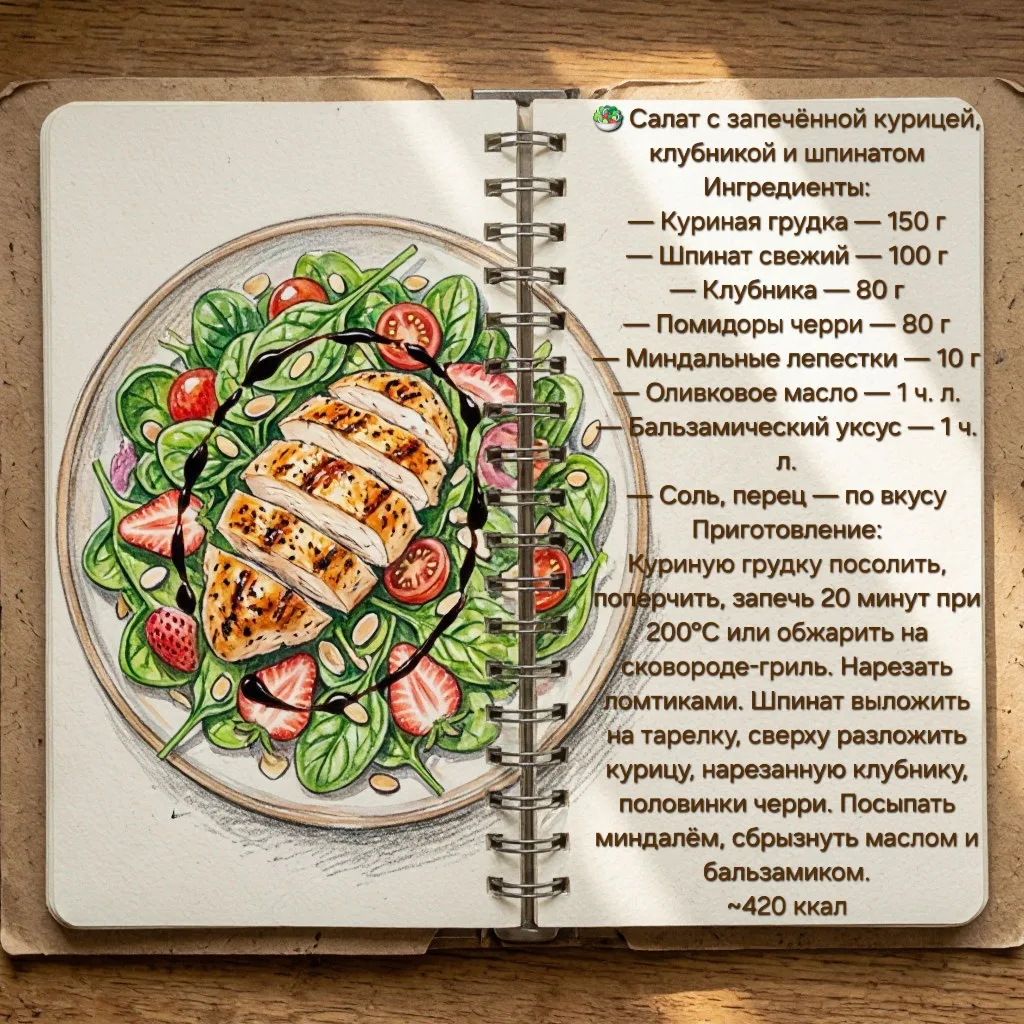 🥗 Салат с запечённой курицей,
клубникой и шпинатом
Ингредиенты:
— Куриная грудка — 150 г
— Шпинат свежий — 100 г
— Клубника — 80 г
— Помидоры черри — 80 г
— Миндальные лепестки — 10 г
— Оливковое масло — 1 ч. л.
— Бальзамический уксус — 1 ч.
л.
— Соль, перец — по вкусу
Приготовление:
Куриную грудку посолить,
поперчить, запечь 20 минут при
200°C или обжарить на
сковороде-гриль. Нарезать
ломтиками. Шпинат выложить
на тарелку, сверху разложить
курицу, нарезанную клубнику,
половинки черри. Посыпать
миндалём, сбрызнуть маслом и
бальзамиком.
~420 ккал